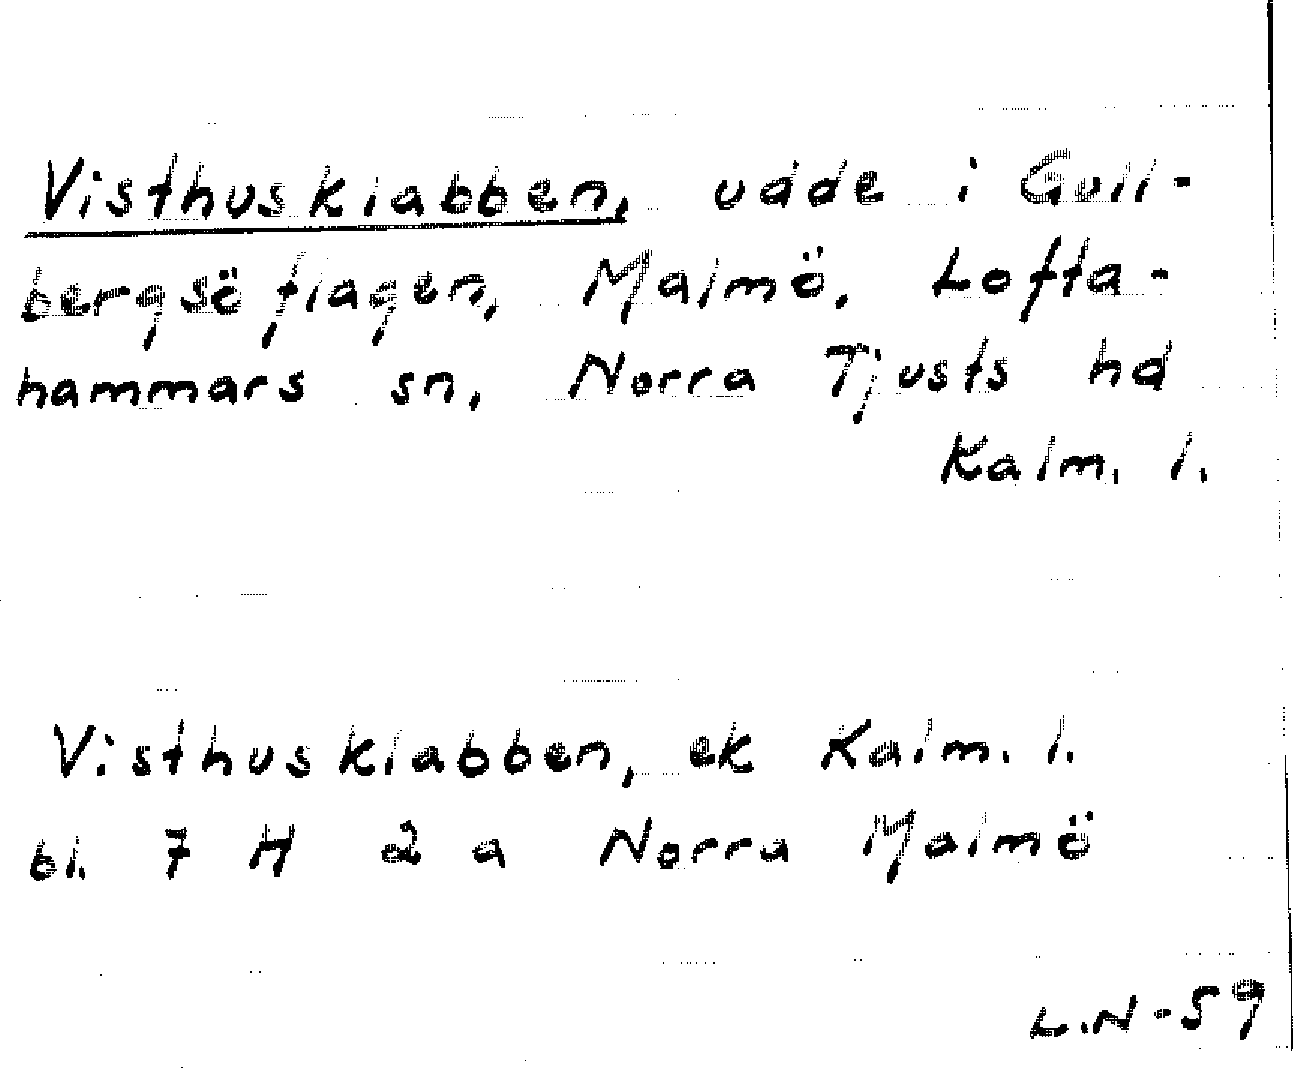 Visthusklabben, udde i Gull-
bergsöflagen, Malmö, Lofta-
hammars sn, Norra Tjusts hd
Kalm. l.
Visthusklabben, ek Kalm. l.
bl. 7 H 2 a Norra Malmö
L.N-59